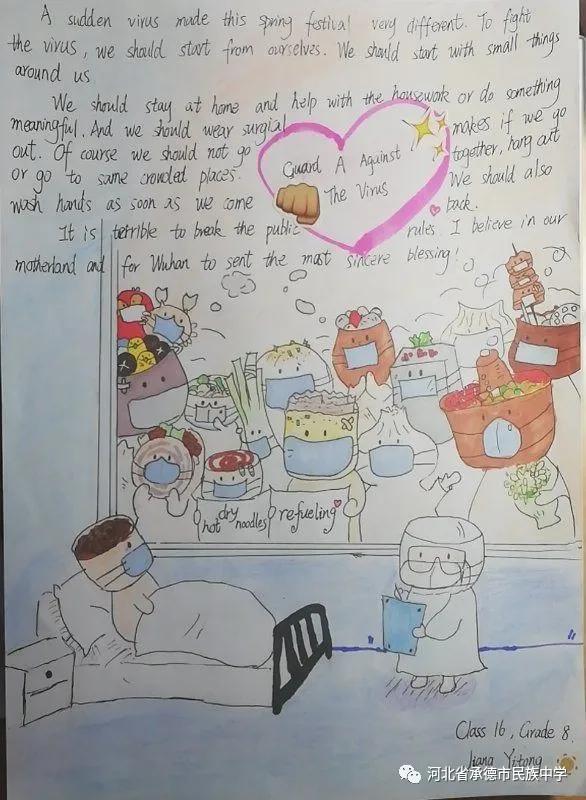 A sudden virus made this spring festival very different. To fight
the virus, we should start from ourselves. We should start with small things
around us
We should stay at home and help with the housework or do something
meaningful. And we should wear surgial makes if we go
out. Of course we should not go together, hang out
or go to some crowded places. We should also
wash hands as soon as we come back.
It is terrible to break the public rules. I believe in our
motherland and for Wuhan to sent the most sincere blessing!
Guard A Against
The Virus
hot dry noodles
refueling
Class 16, Grade 8
Jiang Yitong
河北省承德市民族中学